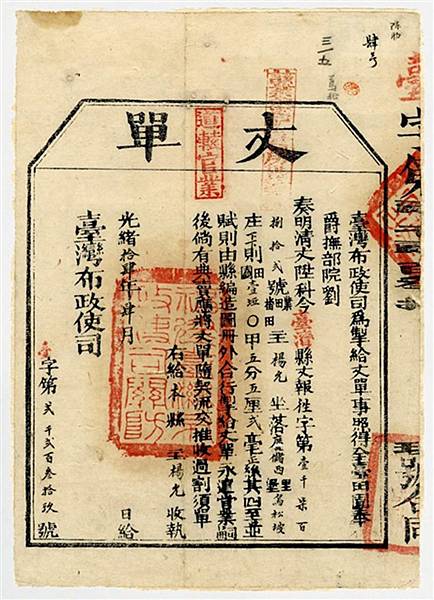 肆号
三一五
丈單
臺灣布政使司為掣給丈單事照得全臺田園奉
爵撫部院劉
奏明清丈陞科今臺灣縣丈報性字第壹千柒百
捌拾貳號田業主王楊元坐落
庄下則田壹段〇甲五分五厘貳毫絲其四至並
賦則由縣編造圖冊外合行掣給丈單永遠管業嗣
後倘有典賣應將丈單隨契流交推收過割須單
右給本縣王楊元收執
光緒拾肆年肆月 日給
臺灣布政使司
臺字第貳千貳百叁拾玖號